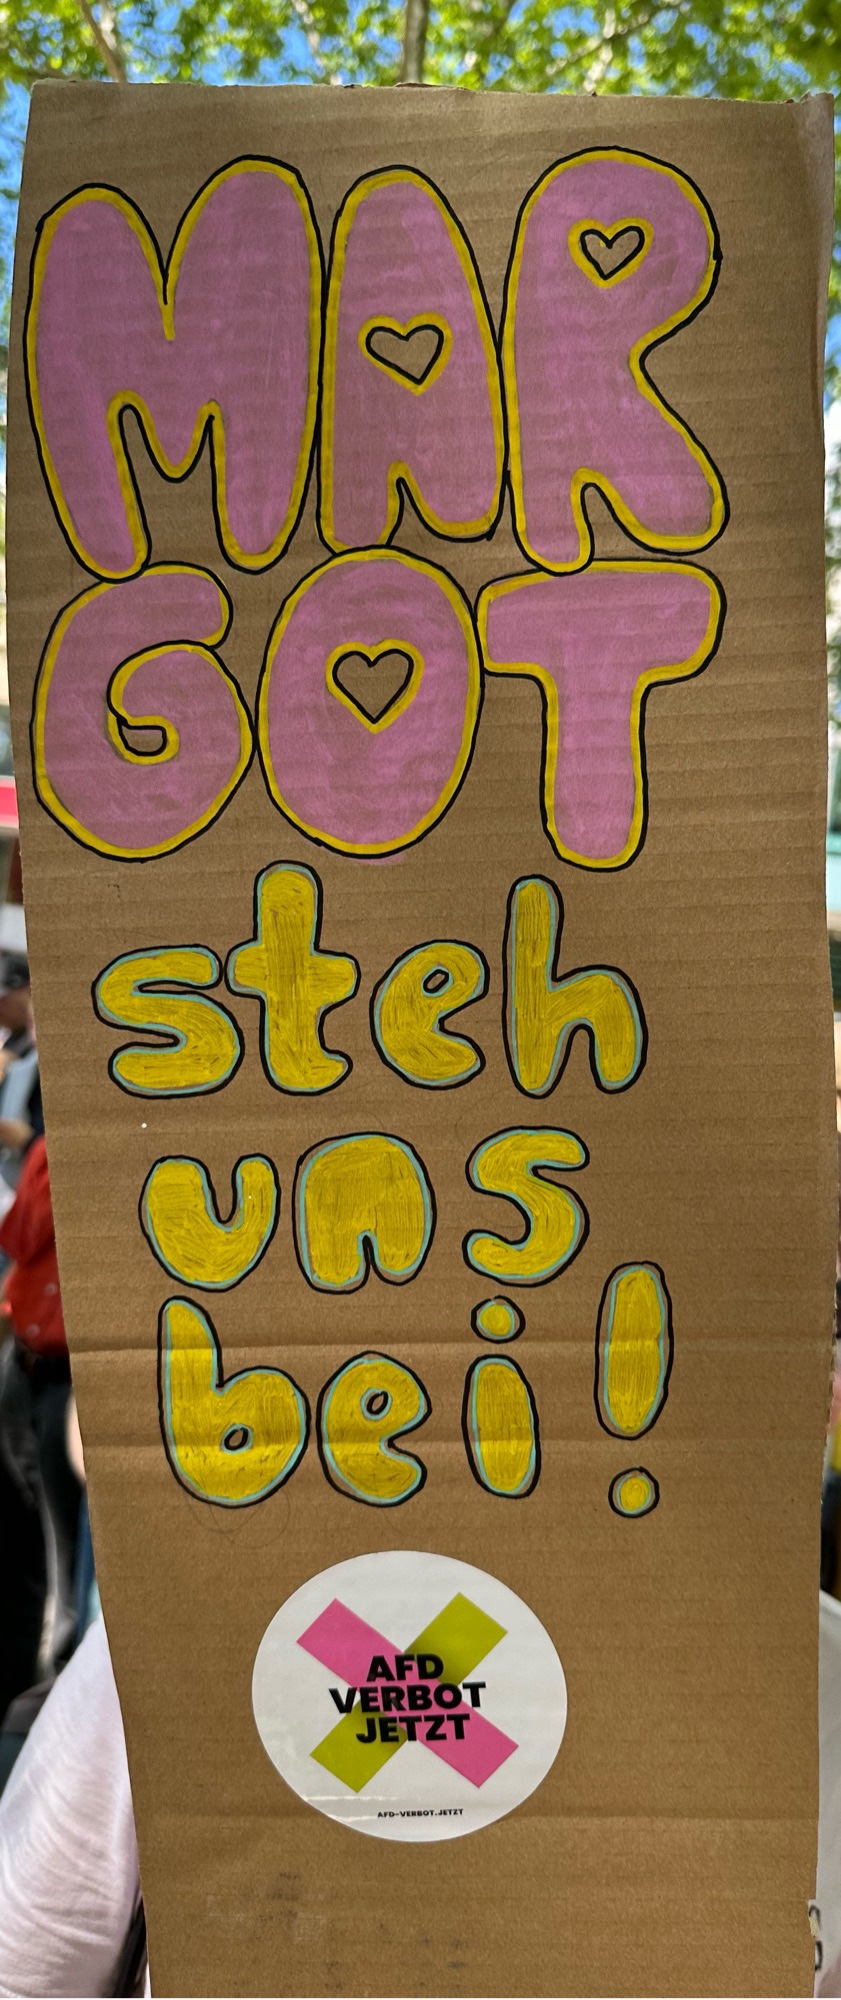 MAR
GOT
steh
uns
bei!
AFD
VERBOT
JETZT
AFD-VERBOT.JETZT